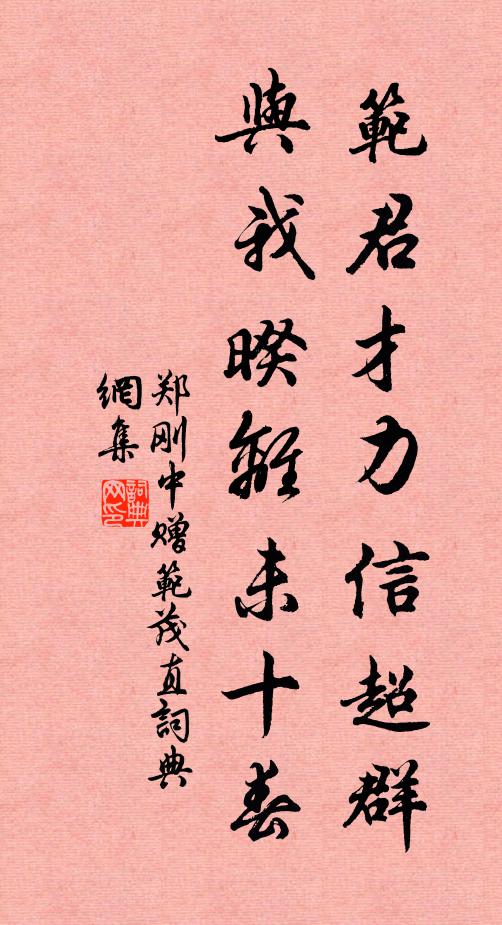 範君才力信超群
與我暌離未十春
郑刚中赠範茂直詞典
網集
詞典网印